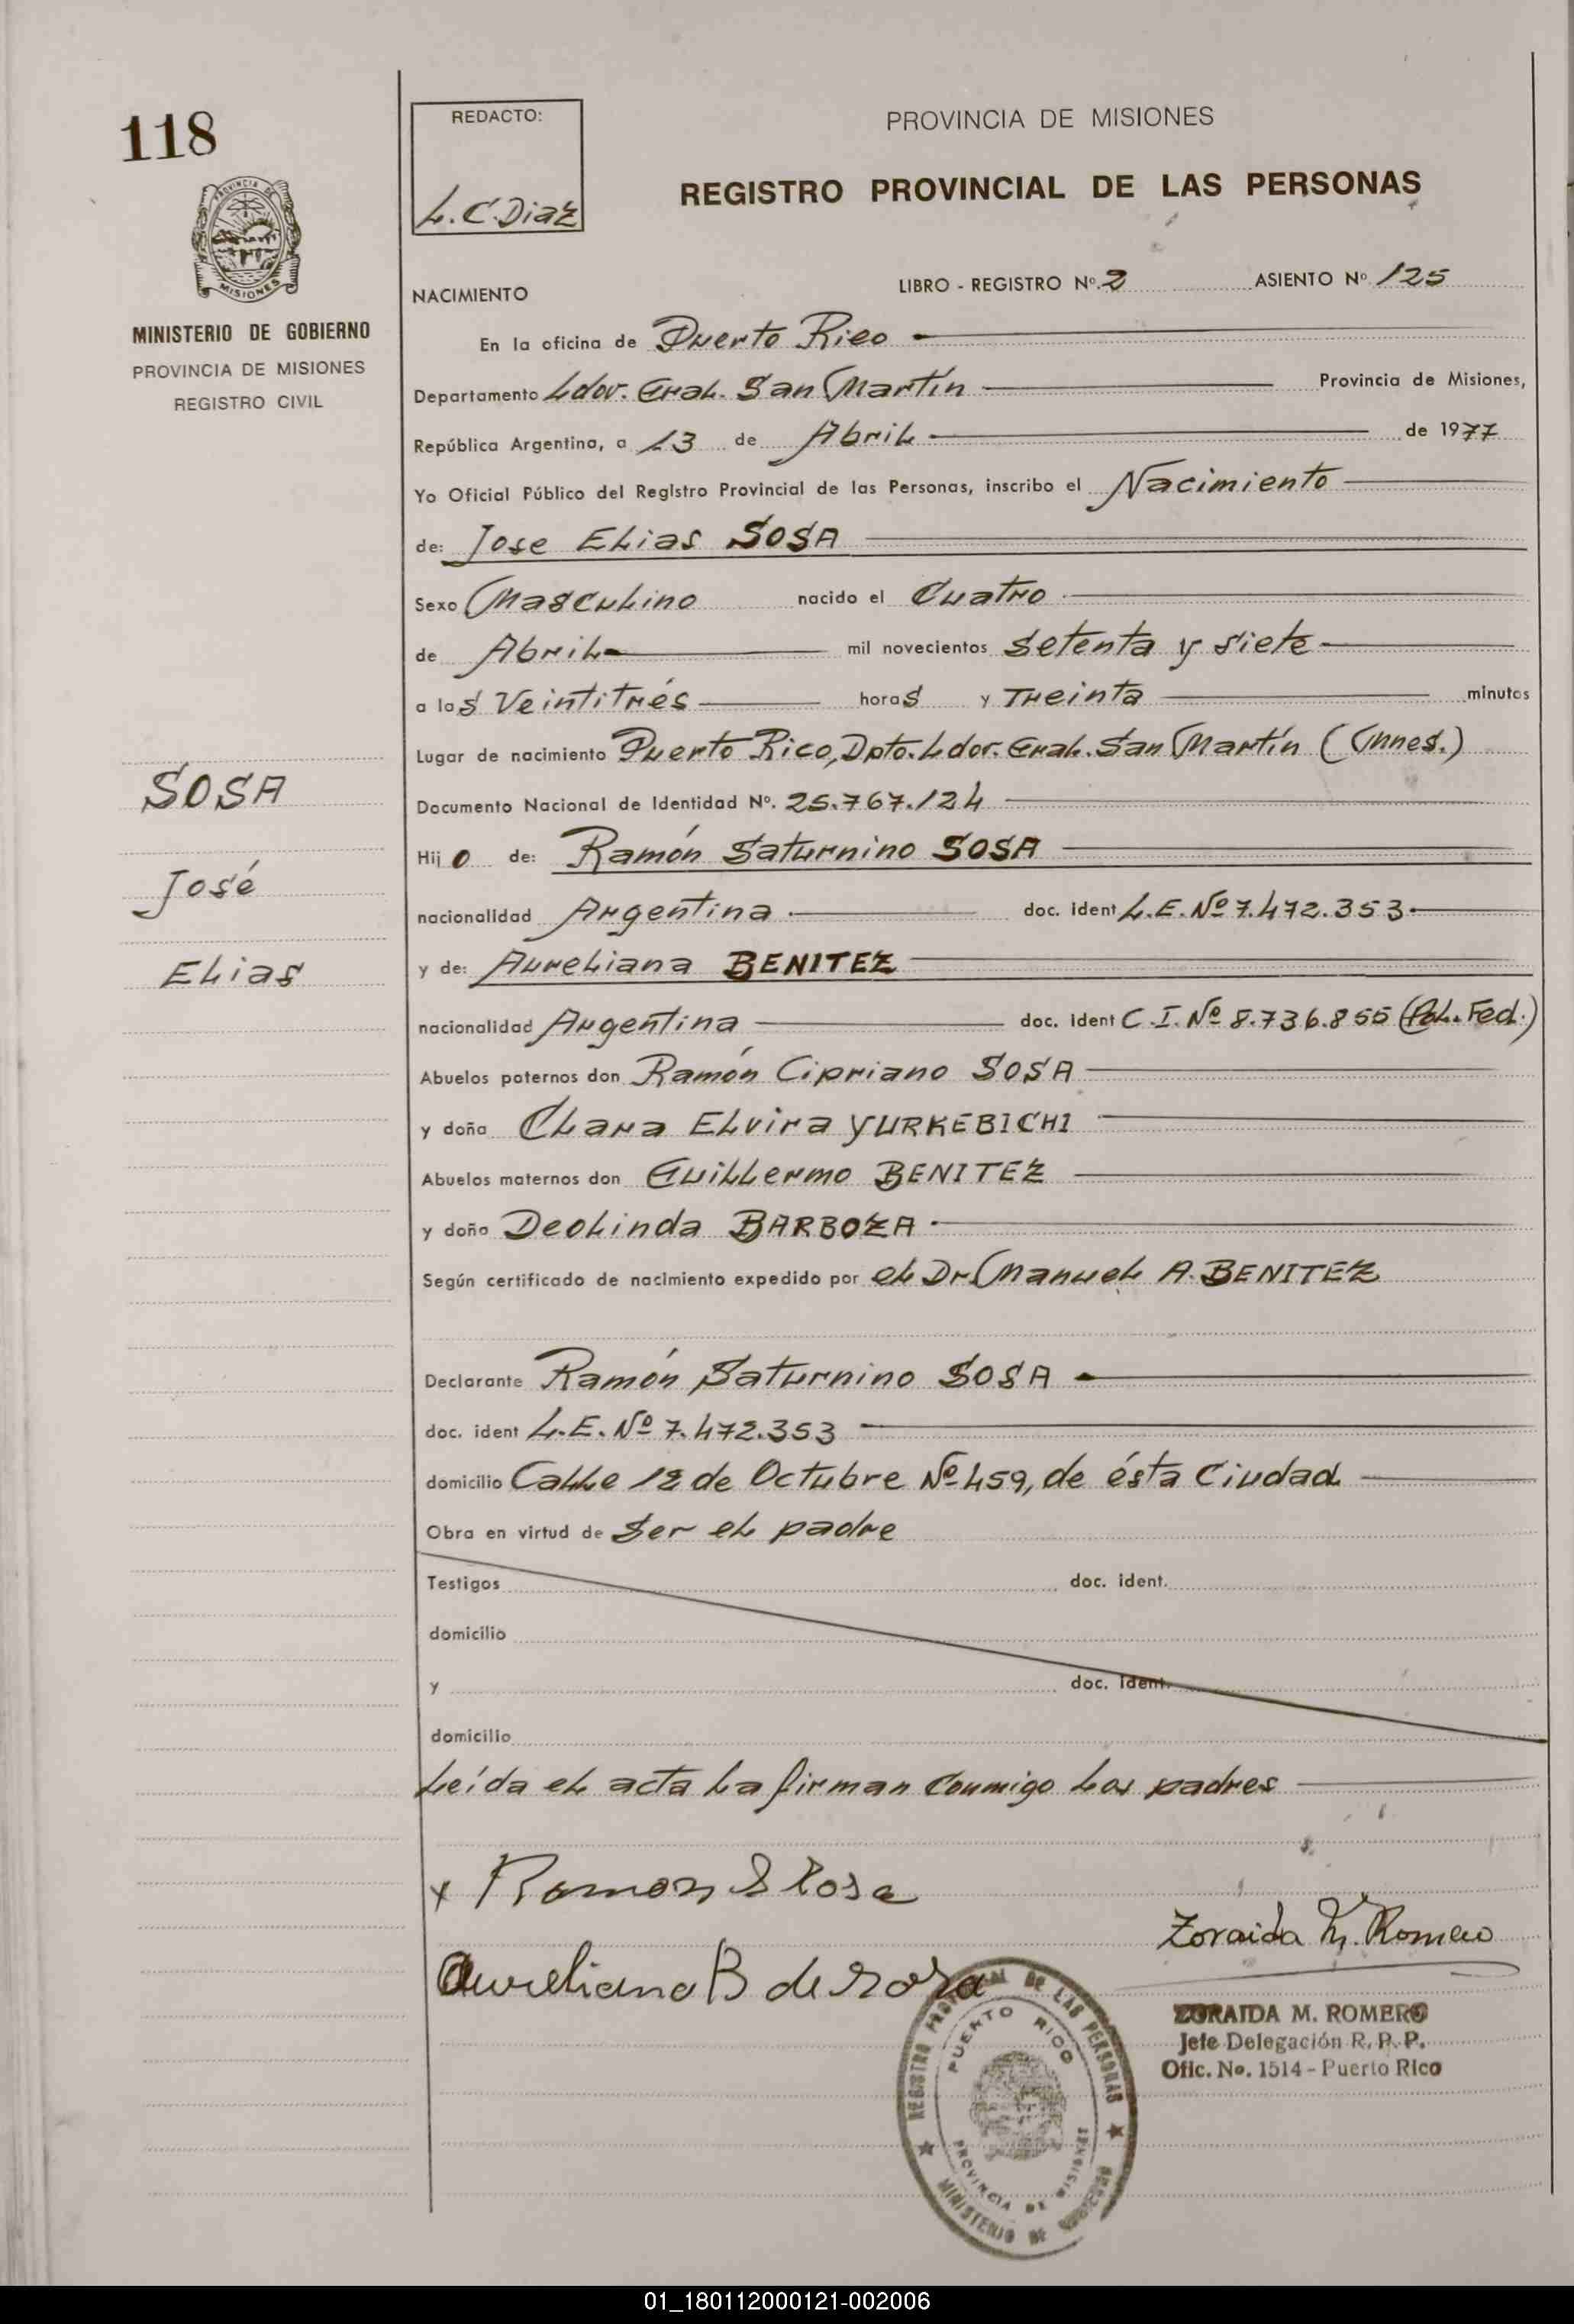 118
PROVINCIA DE
MISIONES
MINISTERIO DE GOBIERNO
PROVINCIA DE MISIONES
REGISTRO CIVIL
SOSA
José
Elias
REDACTO:
L.C. Diaz
PROVINCIA DE MISIONES
REGISTRO PROVINCIAL DE LAS PERSONAS
NACIMIENTO LIBRO - REGISTRO Nº. 2 ASIENTO Nº 125
En la oficina de Puerto Rico
Departamento Ldor. Gral. San Martín Provincia de Misiones,
República Argentina, a 13 de Abril de 1977
Yo Oficial Público del Registro Provincial de las Personas, inscribo el Nacimiento
de: Jose Elias SOSA
Sexo Masculino nacido el Cuatro
de Abril mil novecientos Setenta y siete
a las Veintitrés horas y Treinta minutos
Lugar de nacimiento Puerto Rico, Dpto. Ldor. Gral. San Martín (Mnes.)
Documento Nacional de Identidad Nº. 25.767.124
Hijo de: Ramón Saturnino SOSA
nacionalidad Argentina doc. ident L.E. Nº 7.472.353
y de: Aureliana BENITEZ
nacionalidad Argentina doc. ident C.I. Nº 8.736.855 (Pol. Fed.)
Abuelos paternos don Ramón Cipriano SOSA
y doña Clara Elvira YURKEBICHI
Abuelos maternos don Guillermo BENITEZ
y doña Deolinda BARBOZA
Según certificado de nacimiento expedido por el Dr. Manuel A. BENITEZ
Declarante Ramón Saturnino SOSA
doc. ident L.E. Nº 7.472.353
domicilio Calle 12 de Octubre Nº 459, de ésta Ciudad
Obra en virtud de Ser el padre
Testigos doc. ident.
domicilio
y doc. ident.
domicilio
Leída el acta la firman conmigo los padres
x Ramon S Sosa
Aureliana B de Sosa
Zoraida M. Romero
ZORAIDA M. ROMERO
Jefe Delegación R. P. P.
Ofic. No. 1514 - Puerto Rico
REGISTRO PROVINCIAL DE LAS PERSONAS
PUERTO RICO
PROVINCIA DE MISIONES
MINISTERIO DE GOBIERNO
01_180112000121-002006